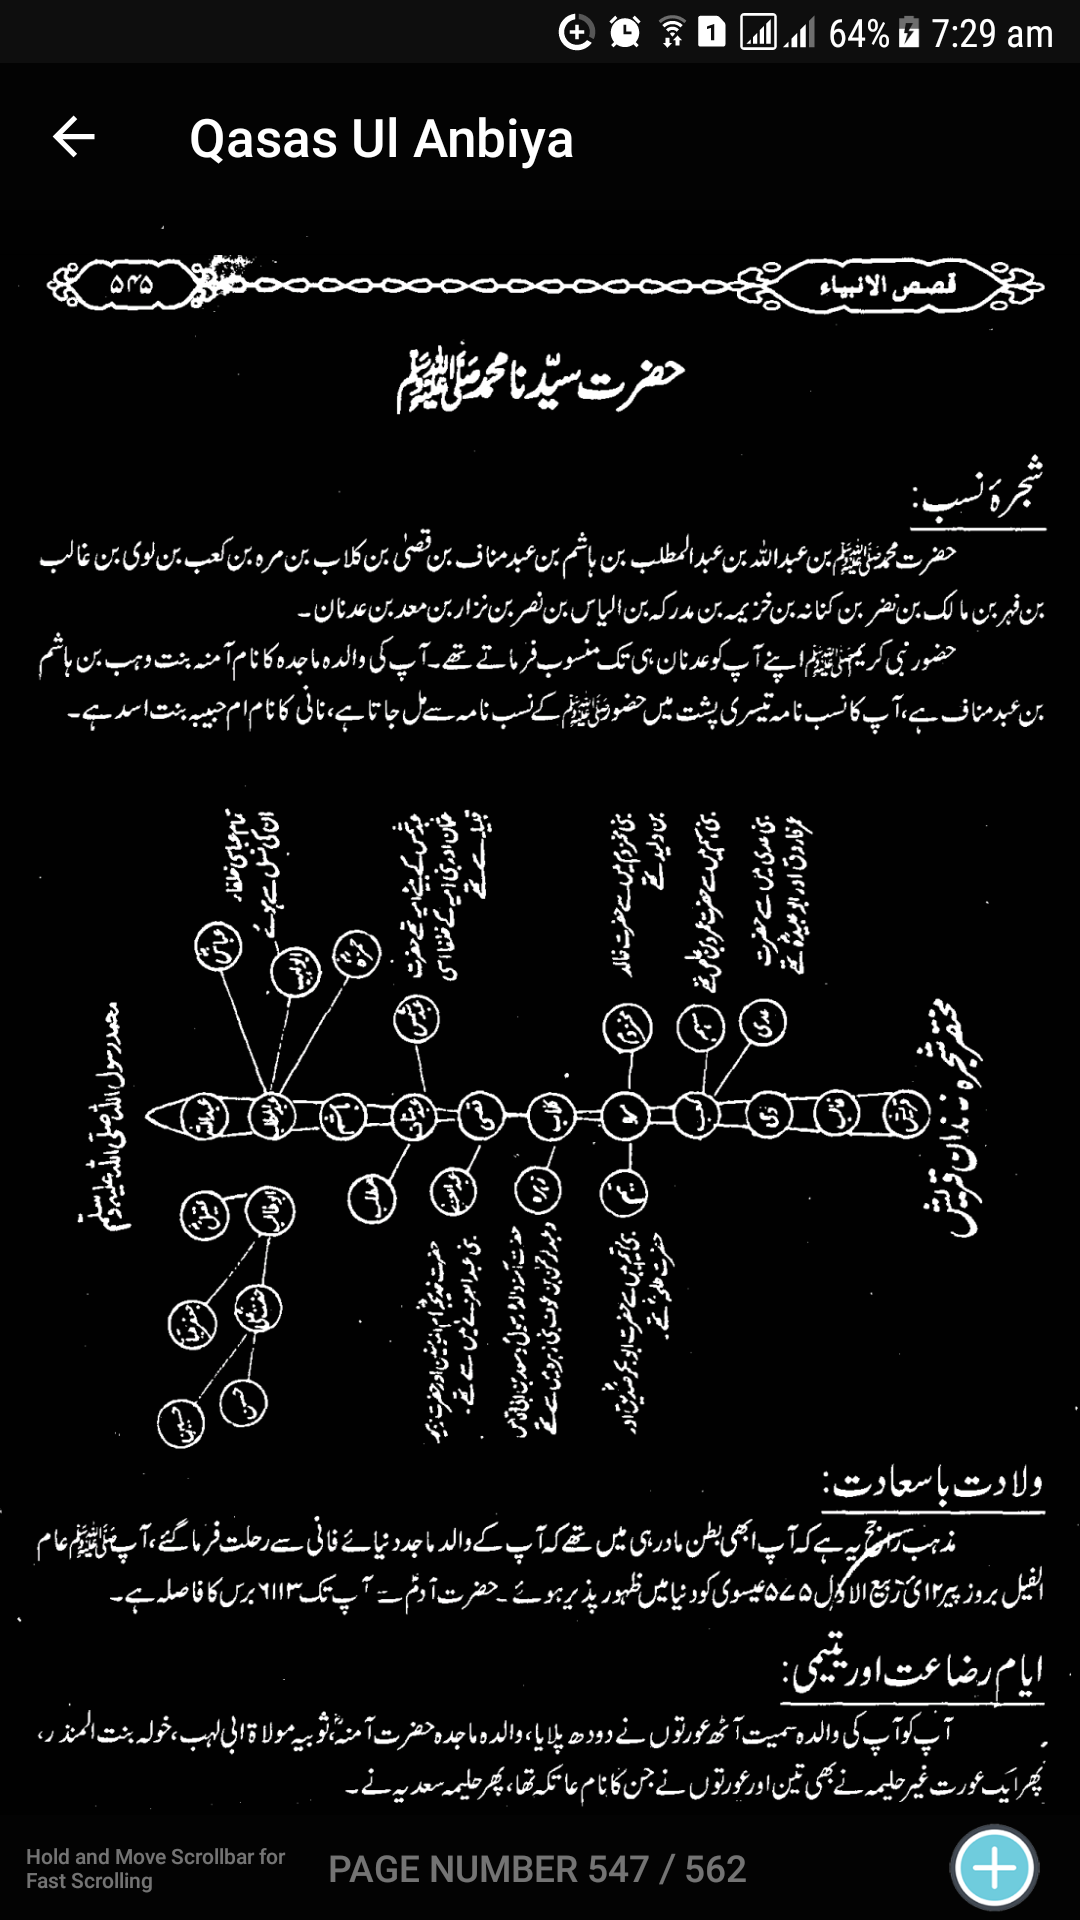 64% 7:29 am
Qasas Ul Anbiya
قصص الانبیاء
۵۴۵
حضرت سیّدنا محمد ﷺ
شجرۂ نسب:
حضرت محمد ﷺ بن عبداللہ بن عبدالمطلب بن ہاشم بن عبد مناف بن قصیٰ بن کلاب بن مرہ بن کعب بن لوی بن غالب
بن فہر بن مالک بن نضر بن کنانہ بن خزیمہ بن مدرکہ بن الیاس بن نصر بن نزار بن معد بن عدنان۔
حضور نبی کریم ﷺ اپنے آپ کو عدنان ہی تک منسوب فرماتے تھے۔ آپ کی والدہ ماجدہ کا نام آمنہ بنت وہب بن ہاشم
بن عبد مناف ہے، آپ کا نسب نامہ تیسری پشت میں حضور ﷺ کے نسب نامہ سے مل جاتا ہے، نانی کا نام ام حبیبہ بنت اسد ہے۔
تمام عباسی خلفاء
ان کی نسل سے ہوئے
عباسؓ
ابولہب
حمزہؓ
عبدشمس
مخزوم
سہم
عدی
محمد رسول اللہ صلی اللہ علیہ وسلم
عبداللہ
عبدالمطلب
ہاشم
عبد مناف
قصی
کلاب
مرہ
کعب
لوی
غالب
قریش
مطلب
زہرہ
تیم
عقیلؓ
ابوطالب
حسن
حسین
ولادت باسعادت:
مذہب راجح یہ ہے کہ آپ ابھی بطن مادر ہی میں تھے کہ آپ کے والد ماجد دنیائے فانی سے رحلت فرما گئے، آپ ﷺ عام
الفیل بروز پیر ۱۲ ربیع الاول ۵۷۵ عیسوی کو دنیا میں ظہور پذیر ہوئے۔ حضرت آدمؑ سے آپ تک ۶۱۱۳ برس کا فاصلہ ہے۔
ایام رضاعت اور یتیمی:
آپ کو آپ کی والدہ سمیت آٹھ عورتوں نے دودھ پلایا، والدہ ماجدہ حضرت آمنہؓ، ثوبیہ مولاۃ ابی لہب، خولہ بنت المنذر،
پھر ایک عورت غیر حلیمہ نے بھی تین اور عورتوں نے جن کا نام عاتکہ تھا، پھر حلیمہ سعدیہ نے۔
Hold and Move Scrollbar for
Fast Scrolling
PAGE NUMBER 547 / 562